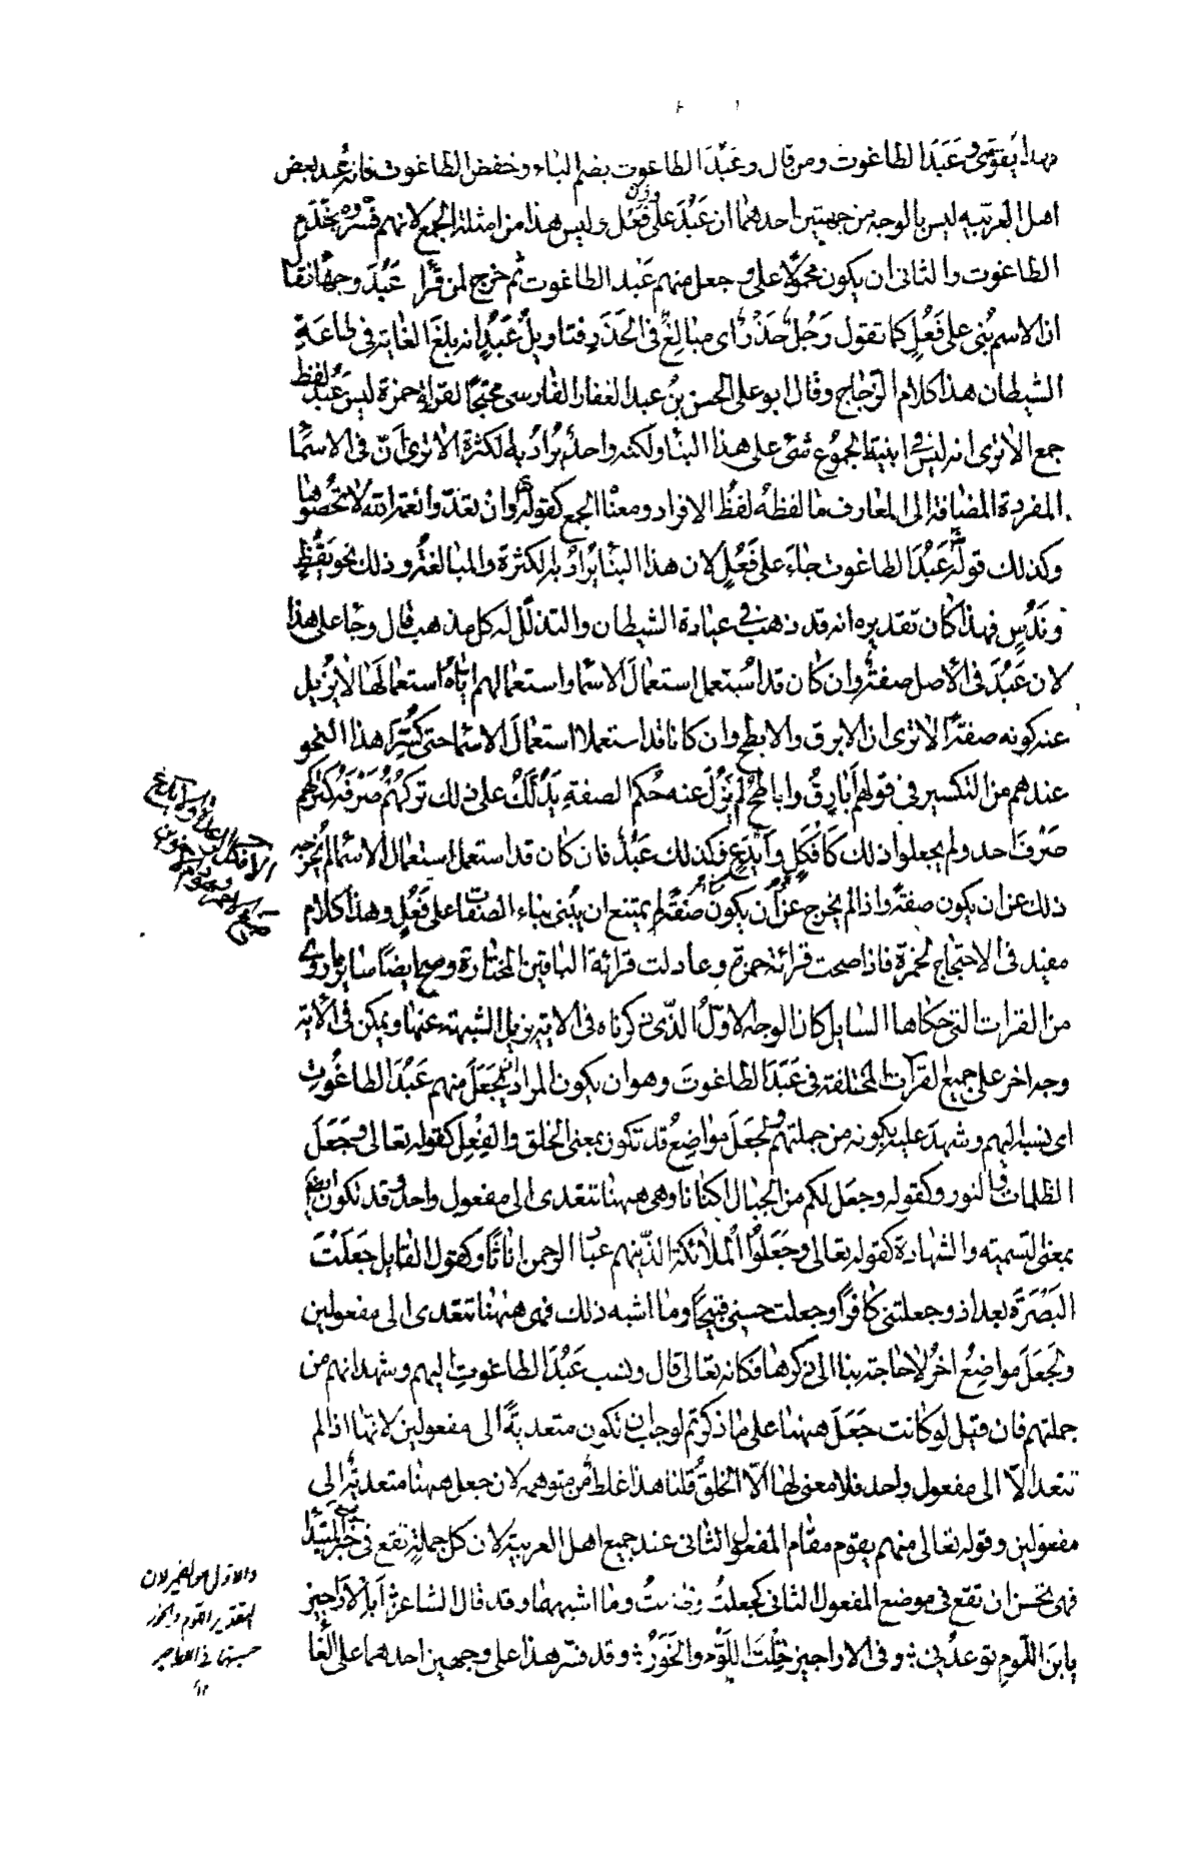 بهذا يقوّى وعَبَدَ الطاغوت ومن قال وعَبُدَ الطاغوت بضم الباء وخفض الطاغوت فانه عند بعض
اهل العربيّة ليس بالوجه من جهتين احدهما ان عَبُدَ على وزن فَعُل وليس هذا من امثلة الجمع لانهم فسّروه بخَدَمِ
الطاغوت والثانى ان يكون محمولًا على وجعل منهم عَبُد الطاغوت ثم خرج لمن قرأ عَبُدَ وجهًا فقال
ان الاسم بُنى على فَعُلٍ كما تقول رَجُل حَذُرٌ اى مبالِغٌ فى الحَذَرِ فتاويلُ عَبُدٍ انه بلغَ الغاية فى طاعَةِ
الشيطان هذا كلام الزجاج وقال ابو على الحسن بنُ عبد الغفار الفارسى محتجًا لقراءة حمزة ليس عَبُد لفظ
جمع الا ترى انه ليس فى ابنية الجموع شئ على هذا البناء ولكنه واحدٌ يُرادُ به الكثرة الا ترى أنّ فى الاسمآ
المفردة المضافة الى المعارف ما لفظهُ لفظُ الافراد ومعناه الجمع كقوله وانْ تعدّوا نعمة الله لا تحصُوها
وكذلك قوله عَبُدَ الطاغوت جاءَ على فَعُلٍ لان هذا البنا يُرادُ به الكثرة والمبالغةُ وذلك نحو يَقُظٍ
ونَدُسٍ فهذا كان تقديره انه قد ذهب فى عبادة الشيطان والتذلّل له كل مذهب قال وجا على هذا
لان عَبُدَ فى الأصل صفةٌ وان كان قد اسُتعمل استعمالَ الاسما واستعمالهم ايّاهُ استعمالَها لا يُزيل
عنه كونه صفةً الا ترى ان الابرق والابطح وان كانا قد استعملا استعمالَ الاسما حتى كُسِّرا هذا النحو
عندهم من التكسير فى قولهم أبارِقُ واباطحُ لم يَزُل عنه حُكم الصفةِ يَدُلّكَ على ذلك تركهُم صَرْفَهُ كتركهم
صَرْفَ احد ولم يجعلوا ذلك كَأفكَلٍ وأيْدَعٍ وكذلك عَبُدٌ فان كان قد استعمل استعمال الاسما لم يُخرجه
ذلك عن ان يكون صفةً واذا لم يخرج عن أن يكون صفةً لم يمتنع ان يُبنى بناء الصفات على فَعُلٍ وهذا كلام
مفيد فى الاحتجاج لحمزة فاذا صحت قرائة حمزة وعادلت قرائة الباقين المختارة وصح ايضًا سائر ما روى
من القرات التى حكاها السايل كان الوجه الاوّلُ الذّى ذكرناه فى الآية يزيل الشبهة عنها ويمكن فى الآية
وجه اخر على جميع القرآت المختلفة فى عَبَدَ الطاغوتَ وهو ان يكون المراد بجَعَلَ منهم عَبُدَ الطاغُوتِ
اى نسبه اليهم وشهدَ عليه بكونه من جملتهم ولجَعَلَ مواضِعُ قد تكون بمعنى الخلق والفِعْلِ كقوله تعالى وجَعَلَ
الظلمات والنور وكقوله وجعَل لكم من الجبال اكنانًا وهى ههنا تتعدى الى مفعول واحد وقد تكون ايضًا
بمعنى التسمية والشهادة كقوله تعالى وجَعَلُوا الملائكة الذّين هم عباد الرحمن اناثًا وكقول القايل جَعَلْتَ
البَصْرَةَ بغداد وجعلتنى كافرًا وجعلت حسنى قبيحًا وما اشبه ذلك فهى ههنا تتعدى الى مفعولين
ولجَعَلَ مواضِعُ اخرُ لا حاجة بنا الى ذكرها فكانه تعالى قال ونسب عَبُدَ الطاغوتِ اليهم وشهد انهم من
جملتهم فان قيل لو كانت جَعَلَ ههنا على ما ذكرتم لوجب ان تكون متعديةً الى مفعولين لانها اذا لم
تتعد الّا الى مفعول واحد فلا معنى لها الّا الخلقُ قلنا هذا غلط من متوهمه لان جعل ههنا متعديةٌ الى
مفعولين وقوله تعالى منهم يقوم مقام المفعول الثانى عند جميع اهل العربية لان كل جملةٍ تقع فى خبر المبتدأ
فهى تحسن ان تقع فى موضع المفعول الثانى كجعلتُ وظننتُ وما اشبههما وقد قال الشاعر أبِا لاراجيز
يا ابنَ اللّومِ توعدُنى : وفى الاراجيز خِلْتَ اللّوْم والخَوَرُ : وقد فسّر هذا على وجهين احدهما على الغا
والاول هو الخبر لان
التقدير اللوم والخور